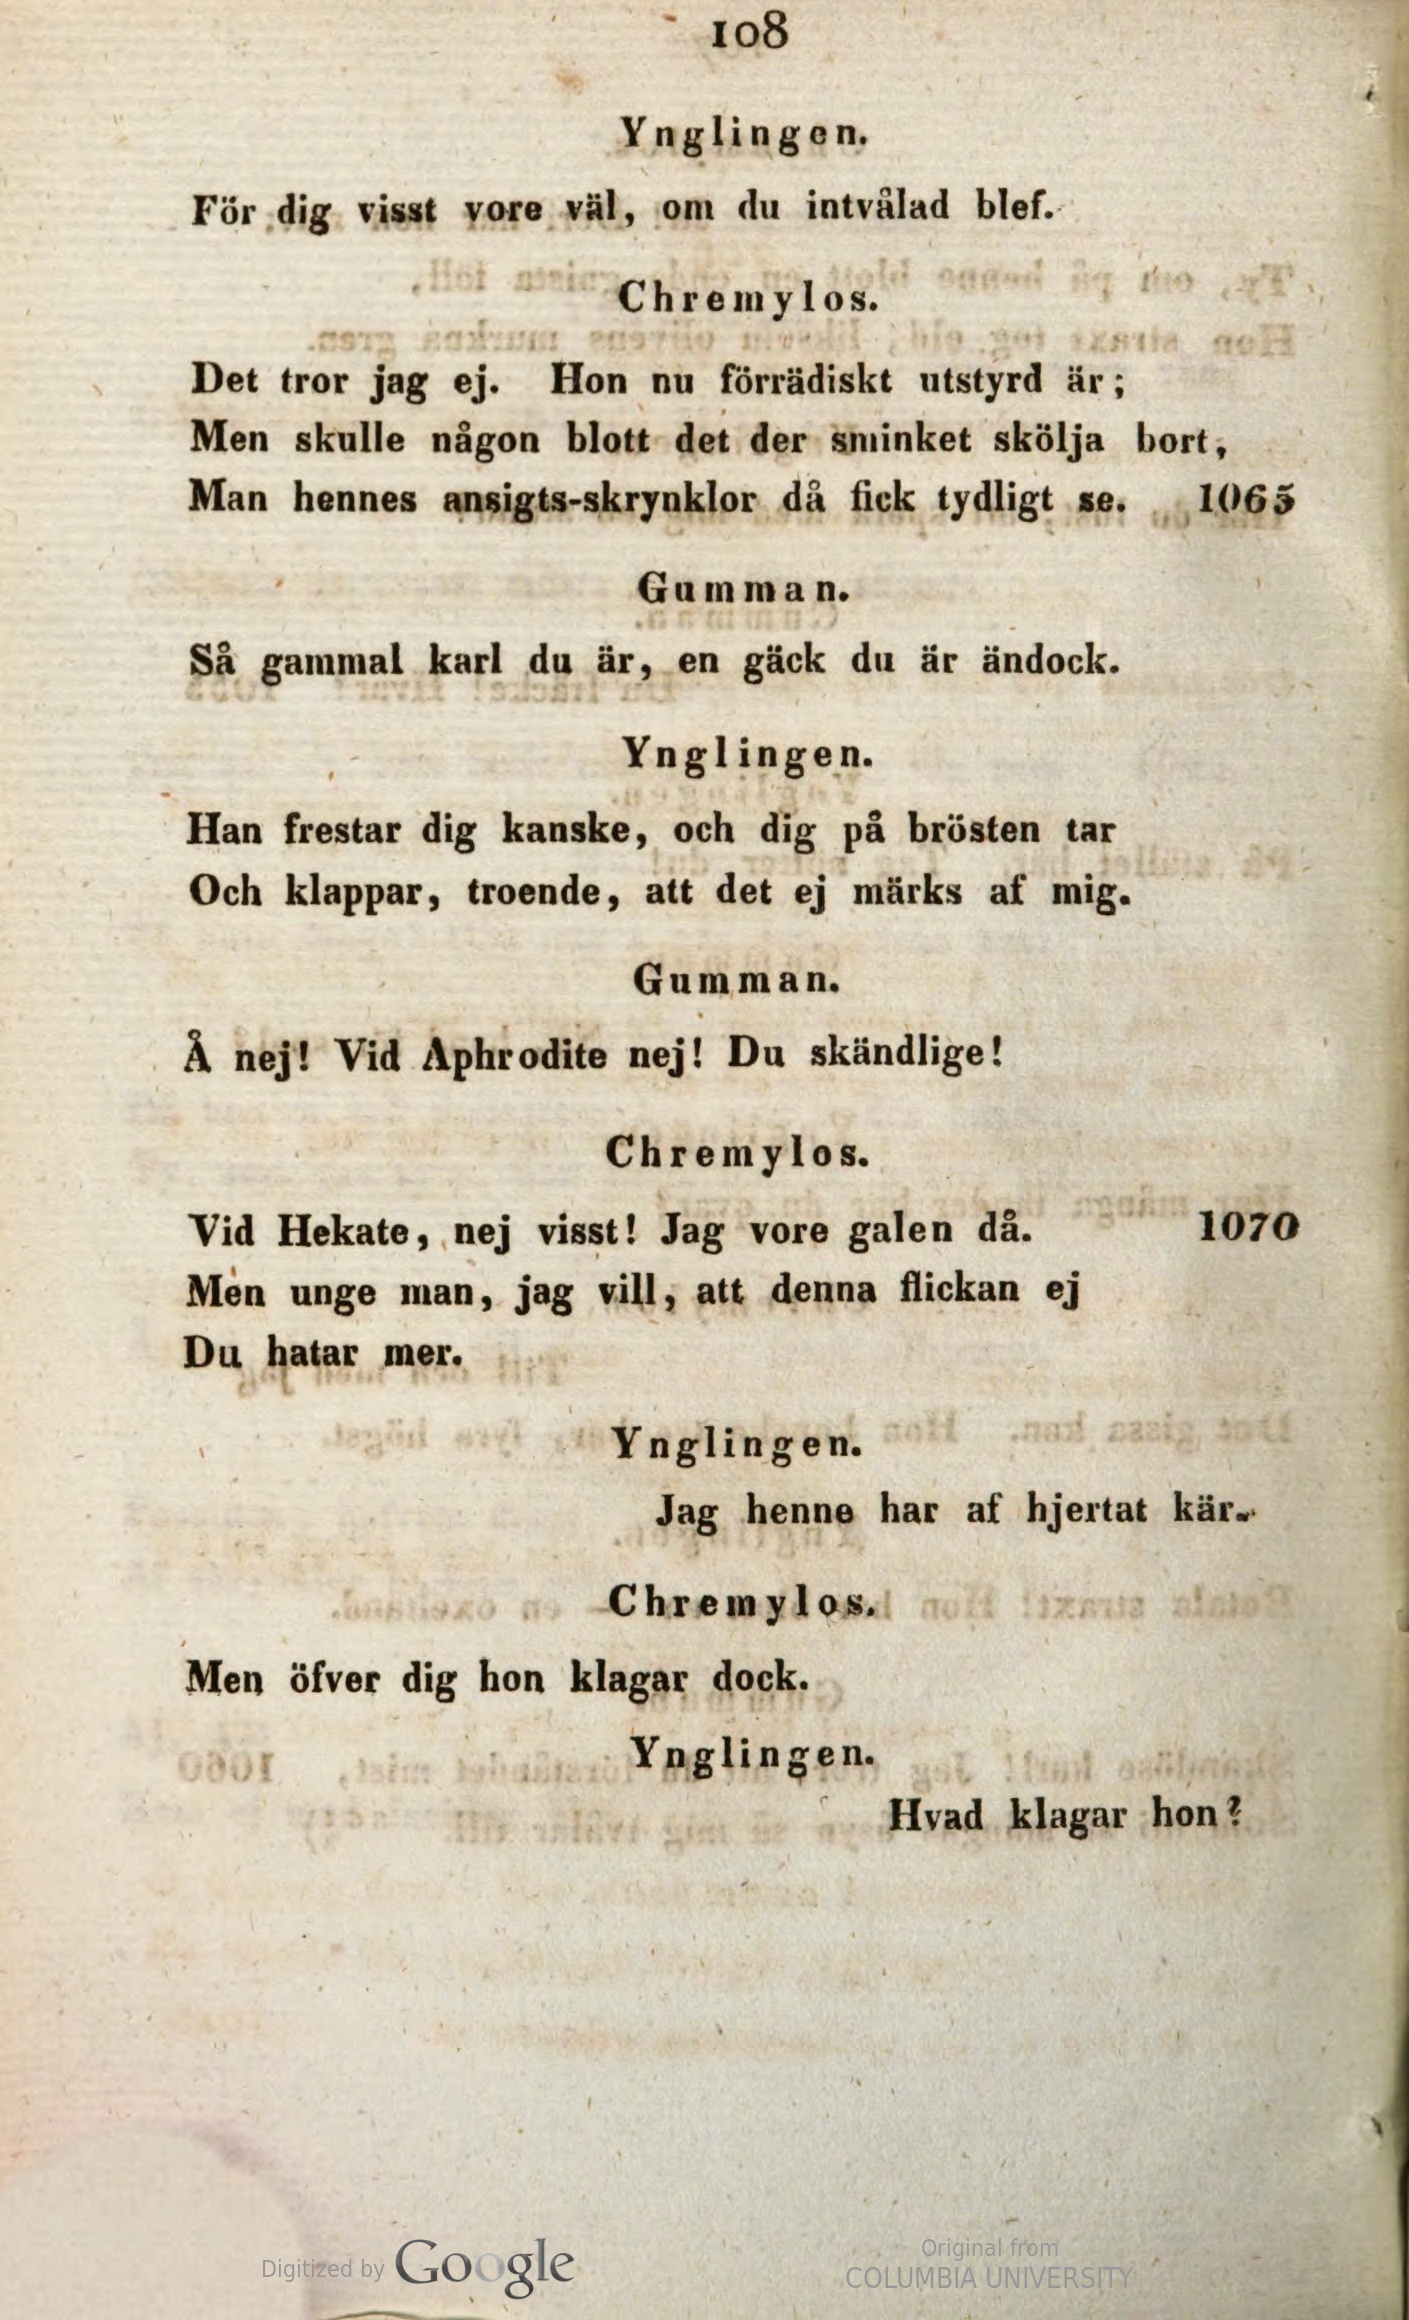 108
Ynglingen.
För dig visst vore väl, om du intvålad blef.
Chremylos.
Det tror jag ej. Hon nu förrädiskt utstyrd är;
Men skulle någon blott det der sminket skölja bort,
Man hennes ansigts-skrynklor då fick tydligt se. 1065
Gumman.
Så gammal karl du är, en gäck du är ändock.
Ynglingen.
Han frestar dig kanske, och dig på brösten tar
Och klappar, troende, att det ej märks af mig.
Gumman.
Å nej! Vid Aphrodite nej! Du skändlige!
Chremylos.
Vid Hekate, nej visst! Jag vore galen då. 1070
Men unge man, jag vill, att denna flickan ej
Du hatar mer.
Ynglingen.
Jag henne har af hjertat kär.
Chremylos.
Men öfver dig hon klagar dock.
Ynglingen.
Hvad klagar hon?
Digitized by Google
Original from
COLUMBIA UNIVERSITY